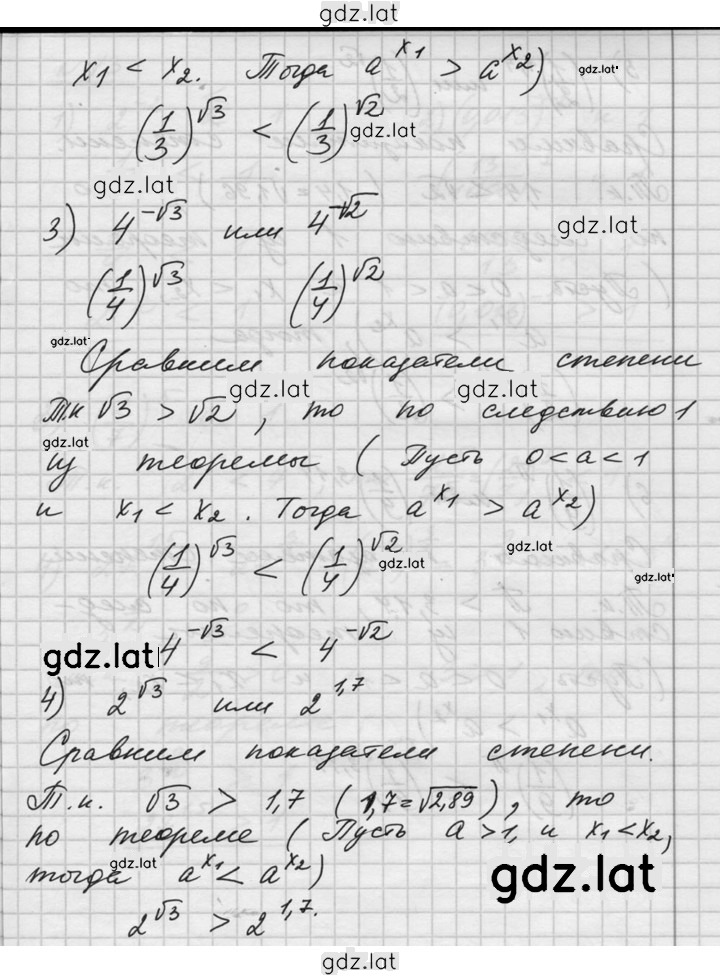 gdz.lat
x₁ < x₂. Тогда a^x₁ > a^x₂) gdz.lat
(1/3)^√3 < (1/3)^√2
gdz.lat
gdz.lat
3) 4^-√3 или 4^-√2 gdz.lat
(1/4)^√3 (1/4)^√2
gdz.lat
Сравним показатели степени
gdz.lat gdz.lat
Т.к √3 > √2, то по следствию 1
gdz.lat
из теоремы (Пусть 0<a<1
и x₁ < x₂. Тогда a^x₁ > a^x₂)
(1/4)^√3 < (1/4)^√2 gdz.lat
gdz.lat gdz.lat
gdz.lat 4^-√3 < 4^-√2
4) 2^√3 или 2^1,7
Сравним показатели степени.
Т.к. √3 > 1,7 (1,7=√2,89), то
по теореме (Пусть a>1, и x₁<x₂,
gdz.lat
тогда a^x₁ < a^x₂) gdz.lat
2^√3 > 2^1,7.
gdz.lat